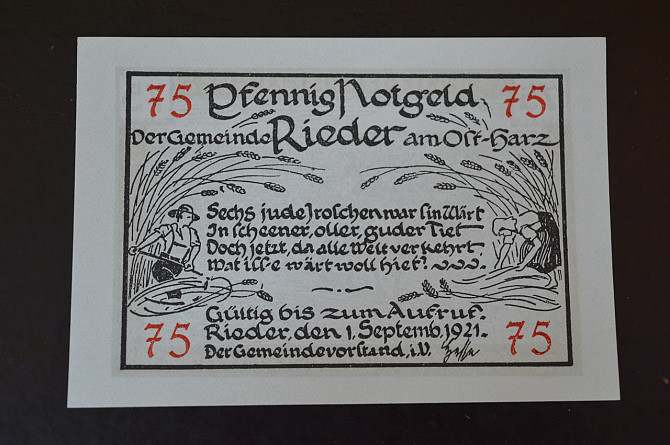 75 Pfennig Notgeld 75
Der Gemeinde Rieder am Ost-Harz
Sechs jude Jroschen war sin Wärt
In scheener, oller, guder Tiet
Doch jetzt, da alle Welt verkehrt,
Wat is se wärt woll hiet?
Gültig bis zum Aufruf.
Rieder, den 1. Septemb. 1921.
75 Der Gemeindevorstand, i.V. 75